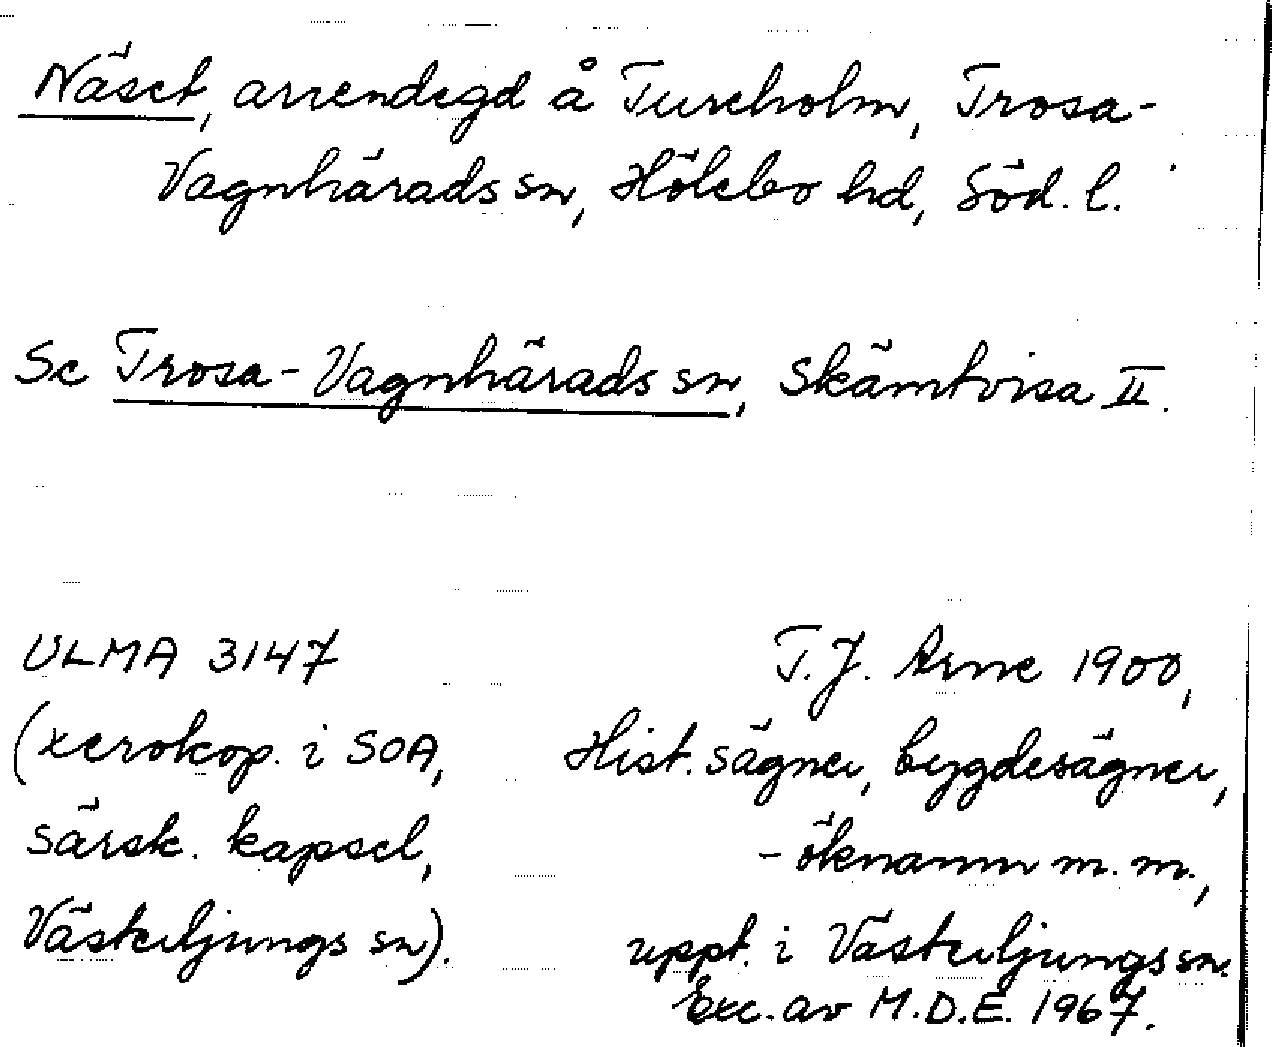 Näset, arrendegd å Tureholm, Trosa-
Vagnhärads sn, Hölebo hd, Söd. l.
Se Trosa-Vagnhärads sn, Skämtvisa II.
ULMA 3147
(xerokop. i SOA,
särsk. kapsel,
Västerljungs sn).
T.J. Arne 1900,
Hist. sägner, bygdesägner,
-öknamn m.m.,
uppt. i Västerljungs sn.
Exc. av M.D.E. 1967.